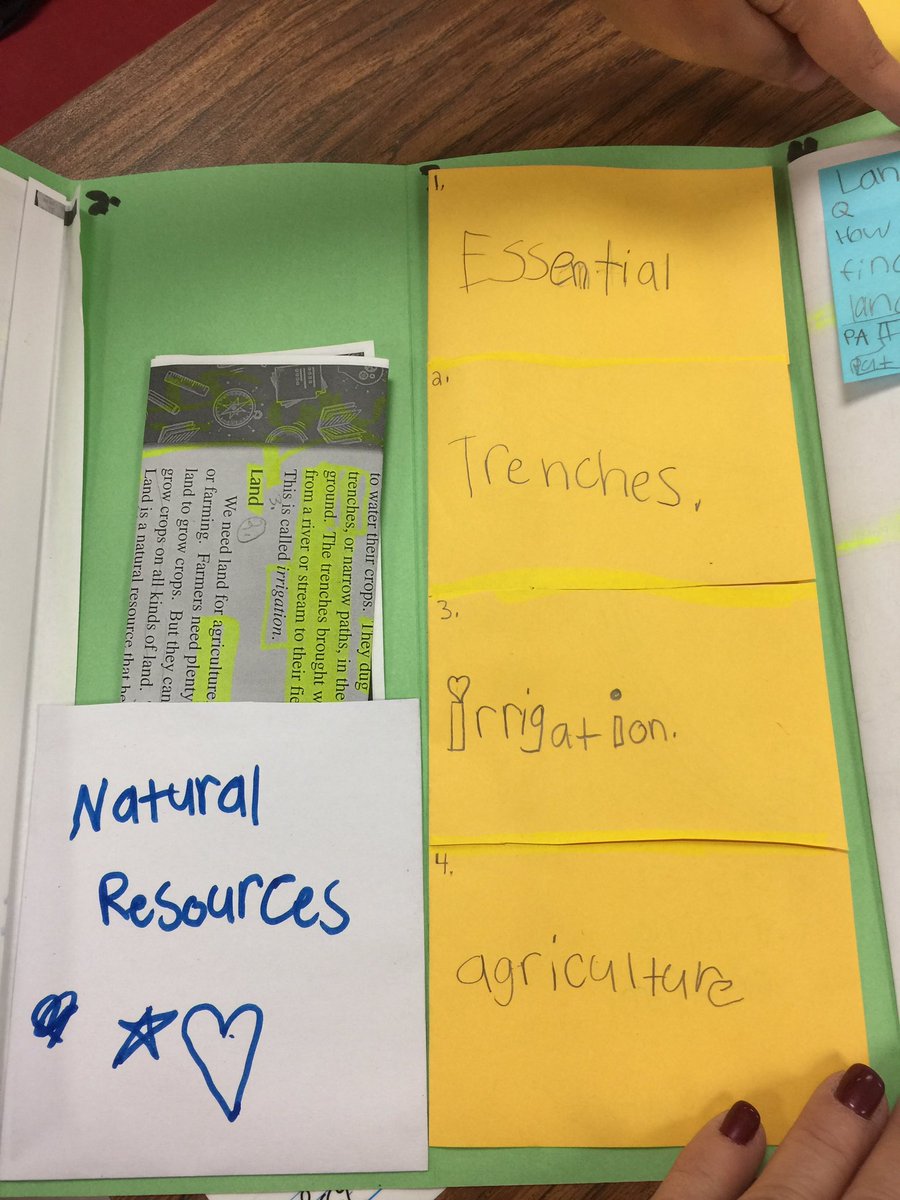 to water their crops. They dug
trenches, or narrow paths, in the
ground. The trenches brought
from a river or stream to their
This is called irrigation.
3.
Land
2.
We need land for agriculture,
or farming. Farmers need plenty
land to grow crops. But they can
grow crops on all kinds of land.
Land is a natural resource that
Natural
Resources
1.
Essential
2.
Trenches.
3.
irrigation.
4.
agriculture
Q
How